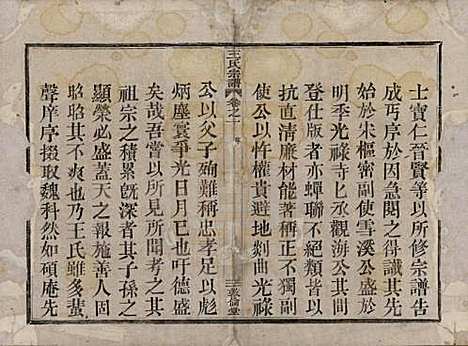 士寶仁晉賢等以所修宗譜告
成丐序於因急閱之得識其先
始於宋樞密副使雪溪公盛於
明季光祿寺丞觀海公其間
登仕版者亦蟬聯不絕皆以
清廉材能著稱正不獨副
使公以忤權貴避地剡曲光祿
王氏宗譜
卷之
彝倫堂
公以父子殉難稱忠孝足以彪
炳塵寰爭光日月已也吁德盛
矣哉吾嘗以所見所聞考之其
祖宗之積累旣深者其子孫之
顯榮必盛蓋天之報施善人固
昭昭其不爽也王氏雖多蜚
聲庠序掇取巍科然如碩庵先